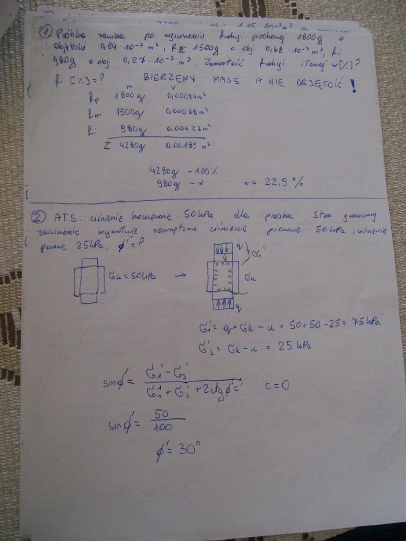 ① Próbka zawiera po wysuszeniu frakcji piaskowej 1800g o
objętości 0,94·10⁻³ m³, fπ 1500g o obj. 0,68·10⁻³ m³, fi
980g o obj. 0,27·10⁻³ m³. Zawartość frakcji iłowej w [%]?
fi [%] = ? BIERZEMY MASĘ A NIE OBJĘTOŚĆ!
m V
fp 1800g 0,00094m³
fπ 1500g 0,00068m³
fi 980g 0,00027m³
Σ 4280g 0,00189m³
4280g - 100%
980g - x x = 22,9%
② ATS: ciśnienie komorowe 50kPa dla piasku. Stan graniczny
ciśnienie pionowe 50kPa, ciśnienie
porowe 25kPa. ϕ' = ?
σk = 50kPa →
q
σ1'
σk
q
σ1' = q + σk - u = 50+50-25 = 75kPa
σ3' = σk - u = 25kPa
sinϕ' = σ1' - σ3' / σ1' + σ3' + 2ctgϕ'c' c=0
sinϕ' = 50/100
ϕ' = 30°